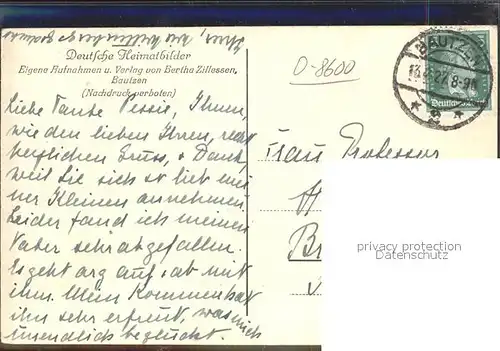 Deutsche Heimatbilder
Eigene Aufnahmen u. Verlag von Bertha Zillessen,
Bautzen
(Nachdruck verboten)
Liebe Tante Pessie, Ihnen,
wie den lieben Ihren, recht
herzlichen Gruss, + Dank,
weil Sie sich so lieb mei
ner Kleinen annehmen.
Leider fand ich meinen
Vater sehr abgefallen.
Es geht arg auf + ab mit
ihm. Mein Kommen hat
ihn sehr erfreut, was mich
unendlich beglückt.
O-8600
BAUTZEN
8-9
Deutsches
Frau Professor
Br
privacy protection
Datenschutz